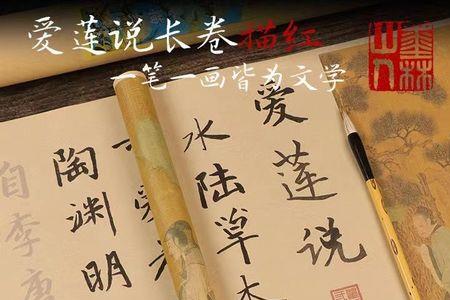 爱莲说长卷描红
一笔一画皆为文学
墨林山人
爱莲说
水陆草木
可爱
陶渊明
自李唐